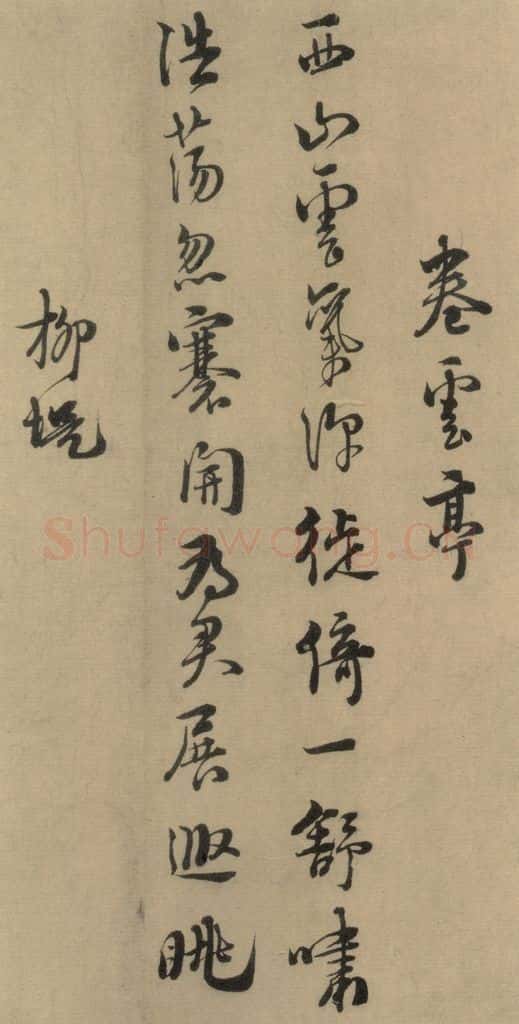 卷雲亭
西山雲氣深徙倚一舒嘯
浩蕩忽褰開為君展遐眺
柳堤
Shufawang.cn